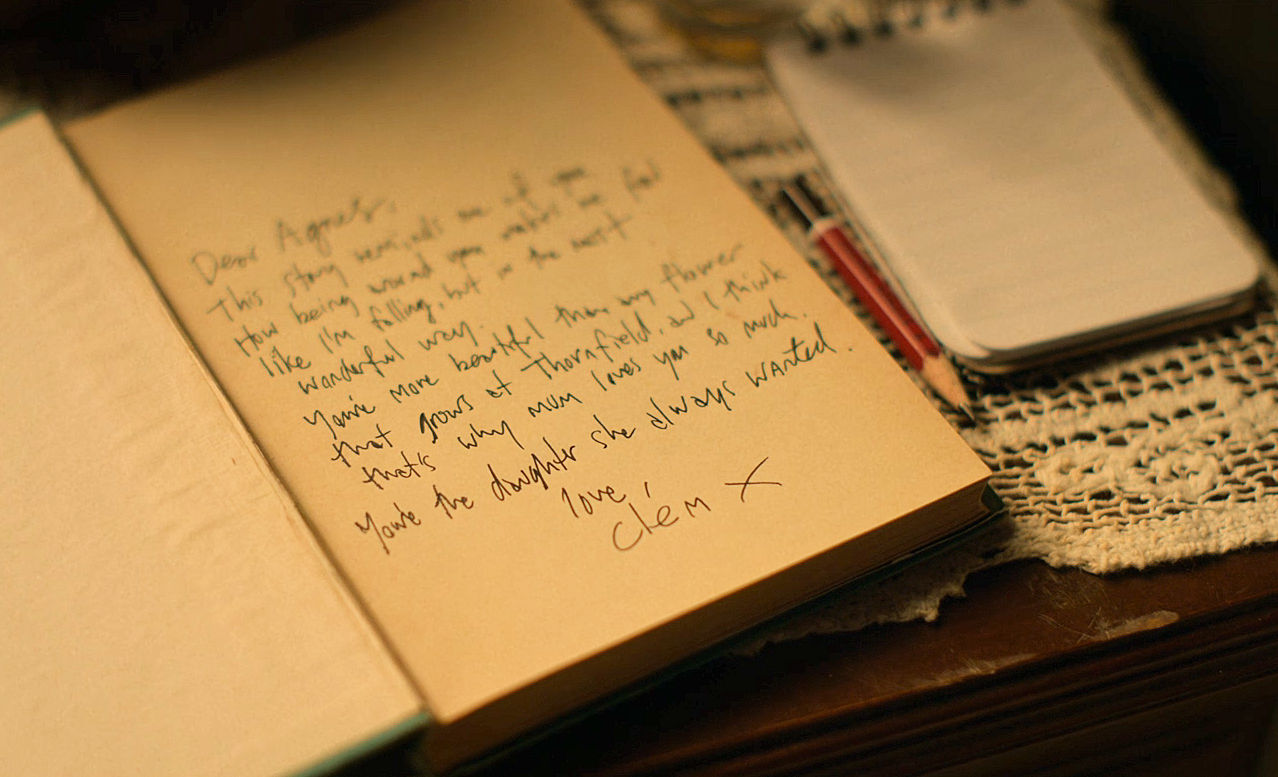 Dear Agnes,
This story reminds me of you
How being around you makes me feel
like I'm falling, but in the most
wonderful way.
You're more beautiful than any flower
that grows at Thornfield, and I think
that's why mum loves you so much.
You're the daughter she always wanted.
love,
Clem X